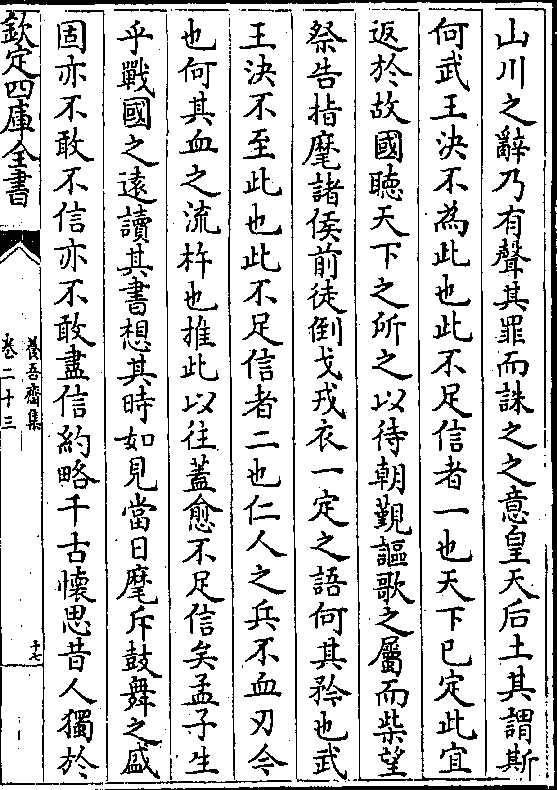 山川之辭乃有聲其罪而誅之之意皇天后土其謂斯
何武王決不為此也此不足信者一也天下已定此宜
返於故國聽天下之所之以待朝覲謳歌之屬而柴望
祭告指麾諸侯前徒倒戈戎衣一定之語何其矜也武
王決不至此也此不足信者二也仁人之兵不血刃今
也何其血之流杵也推此以往蓋愈不足信矣孟子生
乎戰國之遠讀其書想其時如見當日麾斥鼓舞之盛
固亦不敢不信亦不敢盡信約略千古懷思昔人獨於
欽定四庫全書
養吾齋集
卷二十三
十七